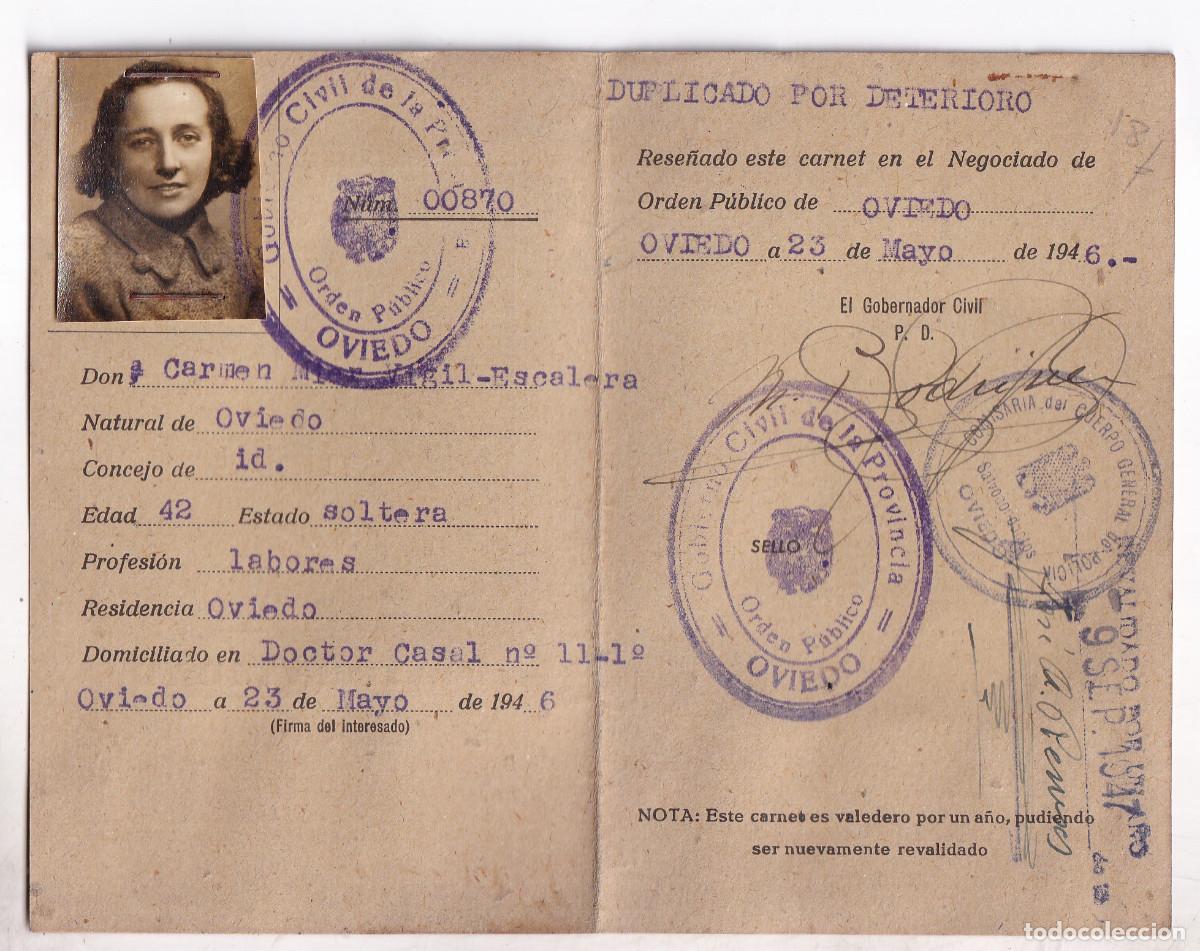 Gobierno Civil de la Provincia
Orden Público
= OVIEDO =
Núm. 00870
Donª Carmen Mier Vigil-Escalera
Natural de Oviedo
Concejo de id.
Edad 42 Estado soltera
Profesión labores
Residencia Oviedo
Domiciliado en Doctor Casal nº 11-1º
Oviedo a 23 de Mayo de 1946
(Firma del interesado)
DUPLICADO POR DETERIORO
187
Reseñado este carnet en el Negociado de
Orden Público de OVIEDO
OVIEDO a 23 de Mayo de 1946.-
El Gobernador Civil
P. D.
Rodríguez
Gobierno Civil de la Provincia
SELLO
Orden Público
= OVIEDO =
COMISARIA del CUERPO GENERAL de POLICIA
Salvoconductos
OVIEDO
REVALIDADO POR UN AÑO
- 9 SEP. 1947
de 19
NOTA: Este carnet es valedero por un año, pudiendo
ser nuevamente revalidado
todocoleccion